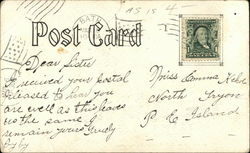 AS IS 4
Post Card
Dear Sister
I received your Postal
pleased to hear you
are well as this leaves
us the same I
remain yours Truly
Miss Emma
North Tryon
P. E. Island